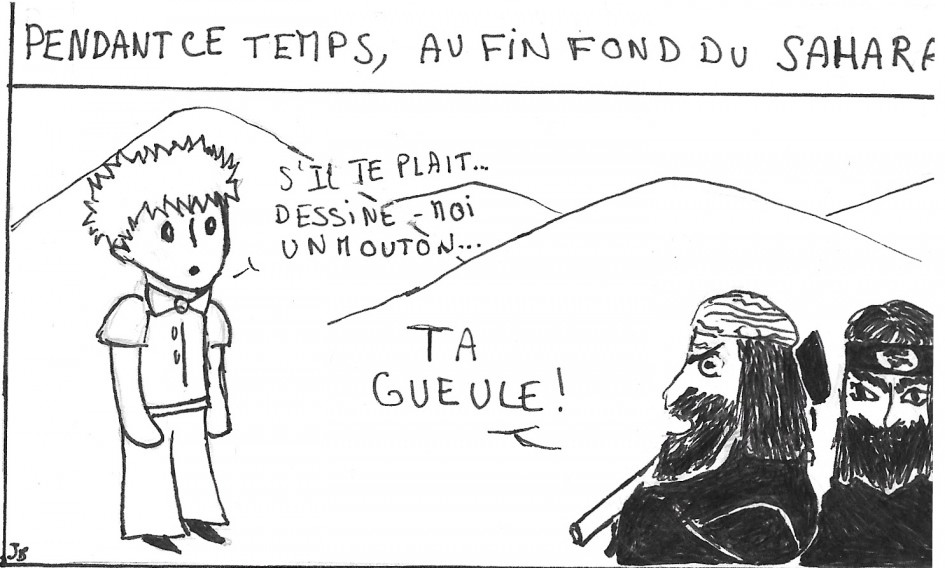 PENDANT CE TEMPS, AU FIN FOND DU SAHARA
S'IL TE PLAIT...
DESSINE-MOI
UN MOUTON...
TA
GUEULE!
JB